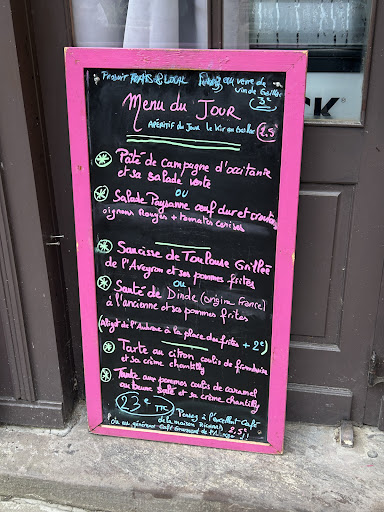 Produit FRAIS & LOCAL Pensez au verre de
vin de Gaillac
3€
Menu du JOUR
APÉRITIF du Jour le Kir au Gaillac 2,5€
Pâté de campagne d'occitanie
et sa salade verte
ou
Salade Paysanne oeuf dur et croutons
oignons Rouges + tomates cerises
Saucisse de Toulouse Grillée
de l'Aveyron et ses pommes frites
ou
Sauté de Dinde (origine France)
à l'ancienne et ses pommes frites
(Aligot de l'Aubrac à la place des frites + 2€)
Tarte au citron coulis de framboise
et sa crème chantilly
Tarte aux pommes coulis de caramel
au beurre salé et sa crème chantilly
23€ TTC Pensez à l'excellent Café
de la maison
2,5€
ou au généreux Café Gourmand
CK